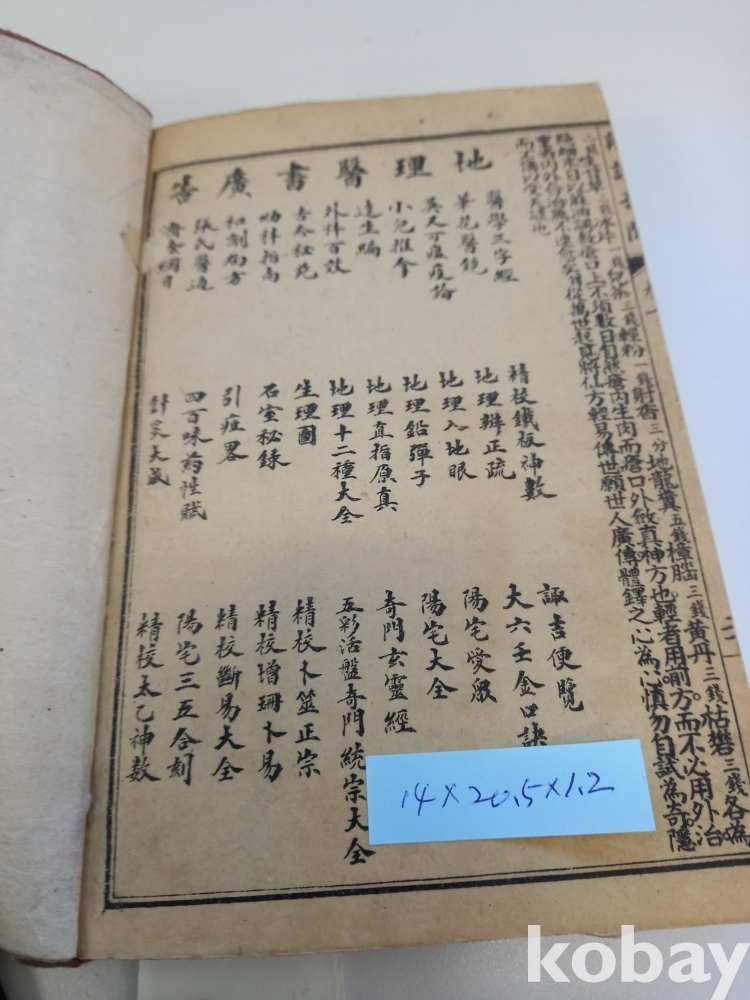 三錢輕粉一錢射香三分地龍糞五錢樟腦三錢黃丹三錢枯礬三錢各為
細末以麻油調敷瘡口上不須數日自然瘡內生肉而瘡口外斂真神方也輕者用前方而不必用外治
從萬世起見將仙方輕易傳世願世人廣傳體鐸之心為心慎勿自試為奇隱
而不傳以受天譴也
地理醫書廣告
醫學三字經
筆花醫鏡
吳又可瘟疫論
小兒推拿
達生編
外科百效
古今秘苑
幼科指南
和劑局方
張氏醫通
綱目
精校鐵板神數
地理辨正疏
地理入地眼
地理鉛彈子
地理直指原真
地理十二種大全
生理圖
石室秘錄
引症畧
四百味药性賦
針灸大成
諏吉便覽
大六壬金口訣
陽宅愛眾
陽宅大全
奇門玄靈經
五彩活盤奇門統宗大全
精校卜筮正宗
精校增珊卜易
精校斷易大全
陽宅三五合刻
精校太乙神數
14×20.5×1.2
kobay